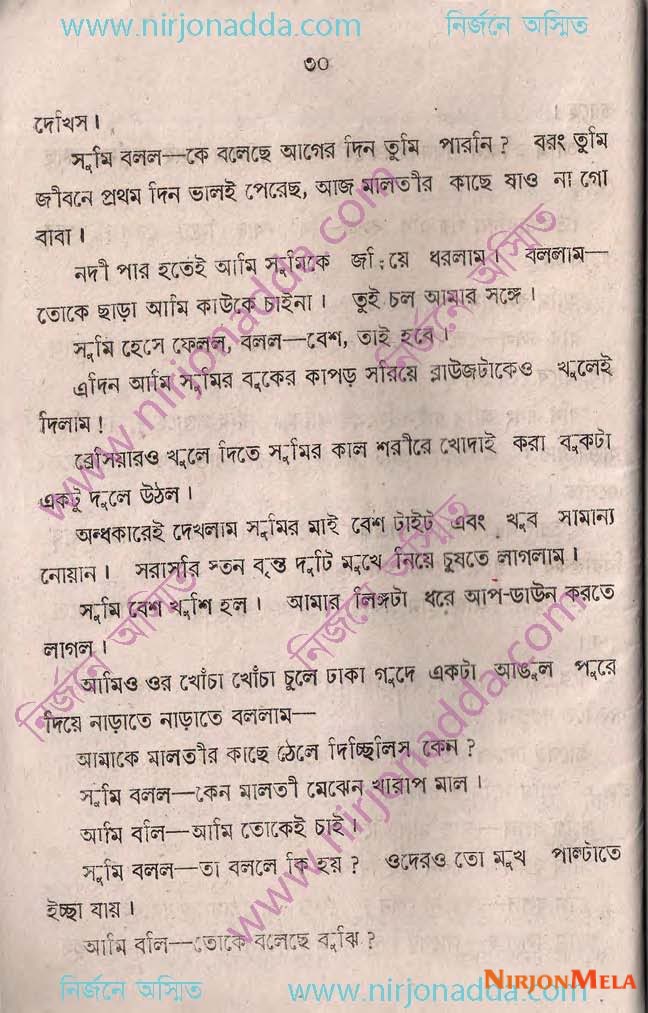 www.nirjonadda.com নির্জনে অস্মিত
৩০
দেখিস।
সুমি বলল—কে বলেছে আগের দিন তুমি পারনি? বরং তুমি
জীবনে প্রথম দিন ভালই পেরেছ, আজ মালতীর কাছে যাও না গো
বাবা।
নদী পার হতেই আমি সুমিকে ধরলাম। বললাম—
তোকে ছাড়া আমি কাউকে চাইনা। তুই চল আমার সঙ্গে।
সুমি হেসে ফেলল, বলল—বেশ, তাই হবে।
এদিন আমি সুমির বুকের কাপড় সরিয়ে ব্লাউজটাকেও খুলেই
দিলাম!
ব্রেসিয়ারও খুলে দিতে সুমির কাল শরীরে খোদাই করা বুকটা
একটু দুলে উঠল।
অন্ধকারেই দেখলাম সুমির মাই বেশ টাইট এবং খুব সামান্য
নোয়ান। সরাসরি স্তন বৃন্ত দুটি মুখে নিয়ে চুষতে লাগলাম।
সুমি বেশ খুশি হল। আমার লিঙ্গটা ধরে আপ-ডাউন করতে
লাগল।
আমিও ওর খোঁচা খোঁচা চুলে ঢাকা গুদে একটা আঙুল পুরে
দিয়ে নাড়াতে নাড়াতে বললাম—
আমাকে মালতীর কাছে ঠেলে দিচ্ছিলিস কেন?
সুমি বলল—কেন মালতী মেঝেন খারাপ মাল।
আমি বলি—আমি তোকেই চাই।
সুমি বলল—তা বললে কি হয়? ওদেরও তো মুখ পাল্টাতে
ইচ্ছা যায়।
আমি বলি—তোকে বলেছে বুঝি?
নির্জনে অস্মিত www.nirjonadda.com
NIRJONMELA
www.nirjonadda.com
নির্জনে অস্মিত
নির্জনে অস্মিত
নির্জনে অস্মিত
www.nirjonadda.com